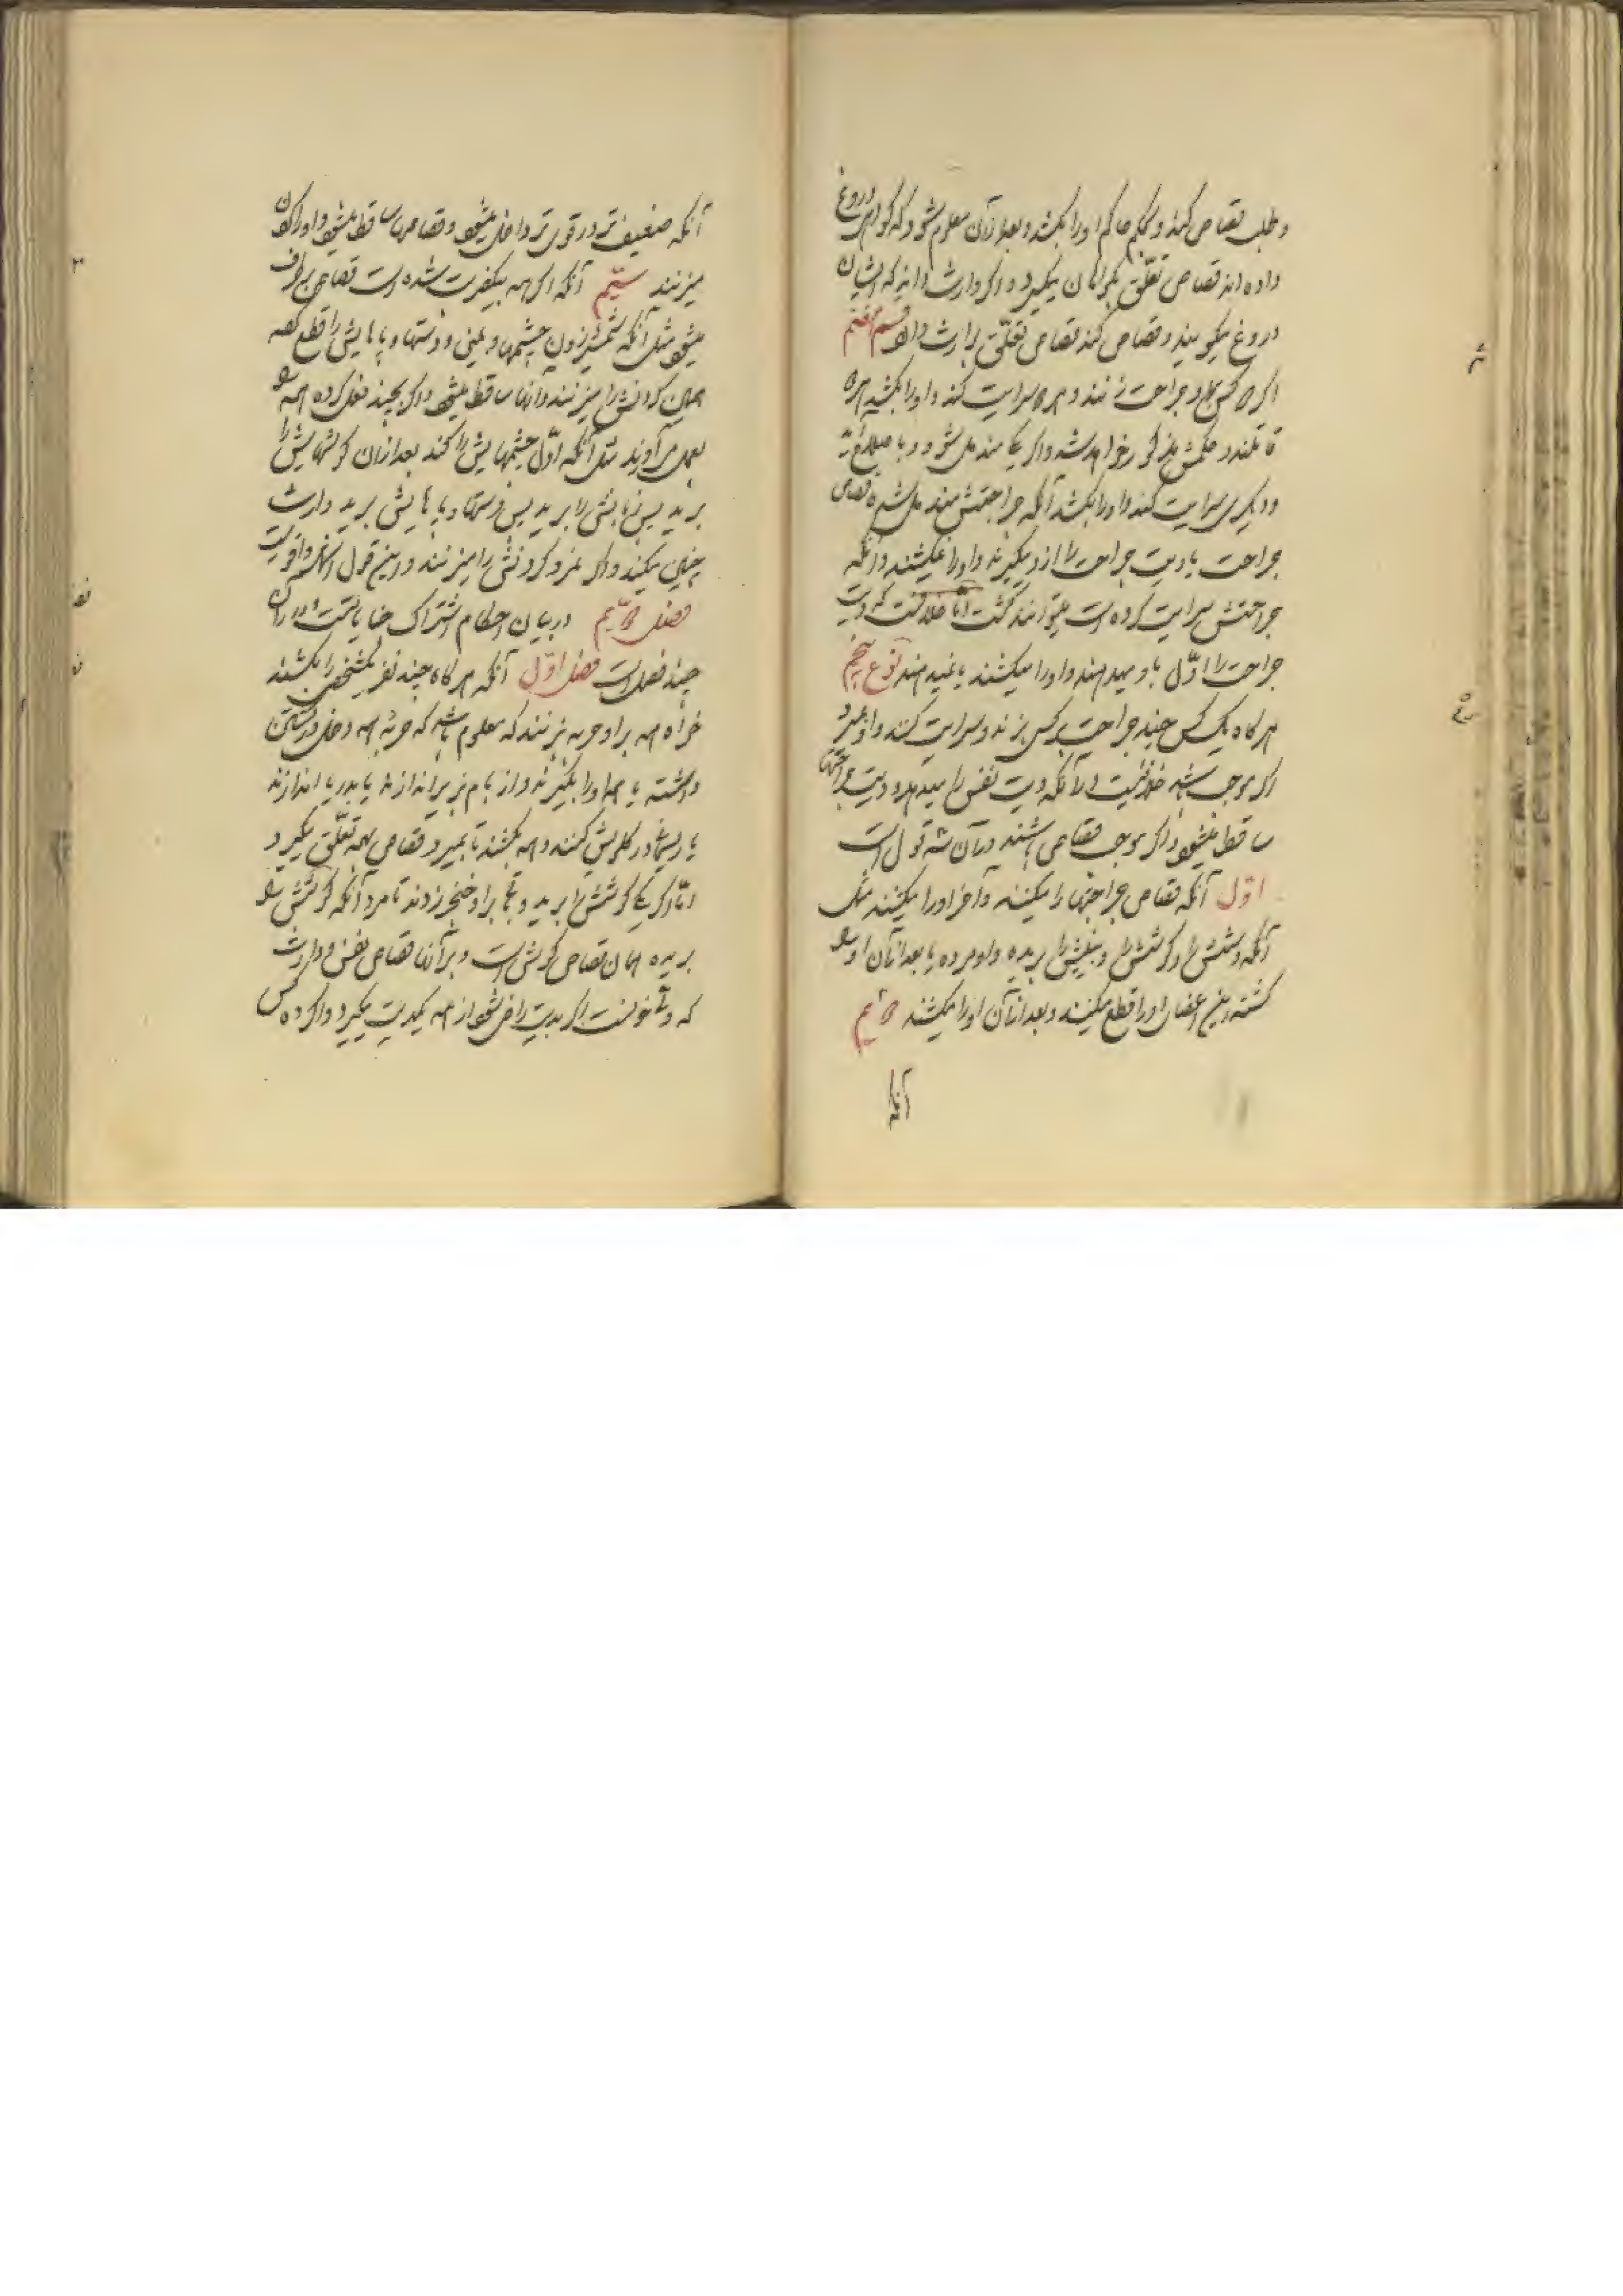 و طلب قصاص کند و بحکم حاکم او را بکشد و بعد از آن معلوم شود که گواهی دروغ
داده‌اند قصاص تعلّق بگواهان میگیرد و اگر وارث داند که ایشان
دروغ میگویند و قصاص کند قصاص تعلّق بوارث دارد قسم هفتم
اگر دو کس جراحت زنند و هر دو سرایت کند و او را بکشد هر دو
قاتلند و حکمش مذکور خواهد شد و اگر یکی مندمل شود
و دیگری سرایت کند و او را بکشد آنکه جراحتش مندمل شده قصاص
جراحت یا دیت جراحت را از او میگیرند و او را نمیکشند و آنکه
جراحتش سرایت کرده است میتوانند کشت امّا خلافست که دیت
جراحت اوّل باو میدهند و او را میکشند یا نمیدهند نوع پنجم
هر گاه یک کس چند جراحت بر کسی بزند و سرایت کند و او بمیرد
اگر موجب خلافی نیست در آنکه دیت نفس را میدهد و دیت جراحتها
ساقط میشود و اگر موجب قصاص باشند در آن سه قول است
اوّل آنکه قصاص جراحتها را میکنند و آخر او را میکشند مثل
آنکه دستش را و گوشش را و بینیش را بریده و او مرده یا بعد از آن او را
کشته این اعضای او را قطع میکنند و بعد از آن او را میکشند دویم
آنکه
آنکه ضعیف‌تر در قوی‌تر داخل میشود و قصاصها ساقط میشود و او را گردن
میزنند سیّم آنکه اگر همه بیکضربت شده است قصاص بر طرف
میشود مثل آنکه شمشیر زدن چشمها و بینی و دستها و پاهایش را قطع کند
همین گردنش را میزنند و آنها ساقط میشود و اگر بچند فعل کرده همه را
بعمل می‌آورند مثل آنکه اوّل چشمهایش را کند بعد از آن گوشهایش را
برید پس زبانش را برید پس دستها و پاهایش برید وارث
چنین میکند و اگر نمرد گردنش را میزنند و این قول اشهر و اقویست
فصل دویم در بیان احکام اشتراک جنایاتست و در آن
چند فصل است فصل اوّل آنکه هر گاه چند نفر یکشخص را بکشند
خواه همه بر او حربه بزنند که معلوم باشد که حربهٔ همه دخل در کشتن
داشته یا همه او را بگیرند و از بام بزیر اندازند یا بدریا اندازند
یا ریسمان در گلویش کنند و همه بکشند تا بمیرد قصاص بهمه تعلّق میگیرد
امّا اگر یکی گوشش را برید و جمعی بر او خنجر زدند تا مرد آنکه گوشش را
بریده همان قصاص گوش است و بر آنها قصاص نفس و وارث
که ولیّ خونست اگر بدیت راضی شود از همه یکدیت میگیرد و اگر ده کس